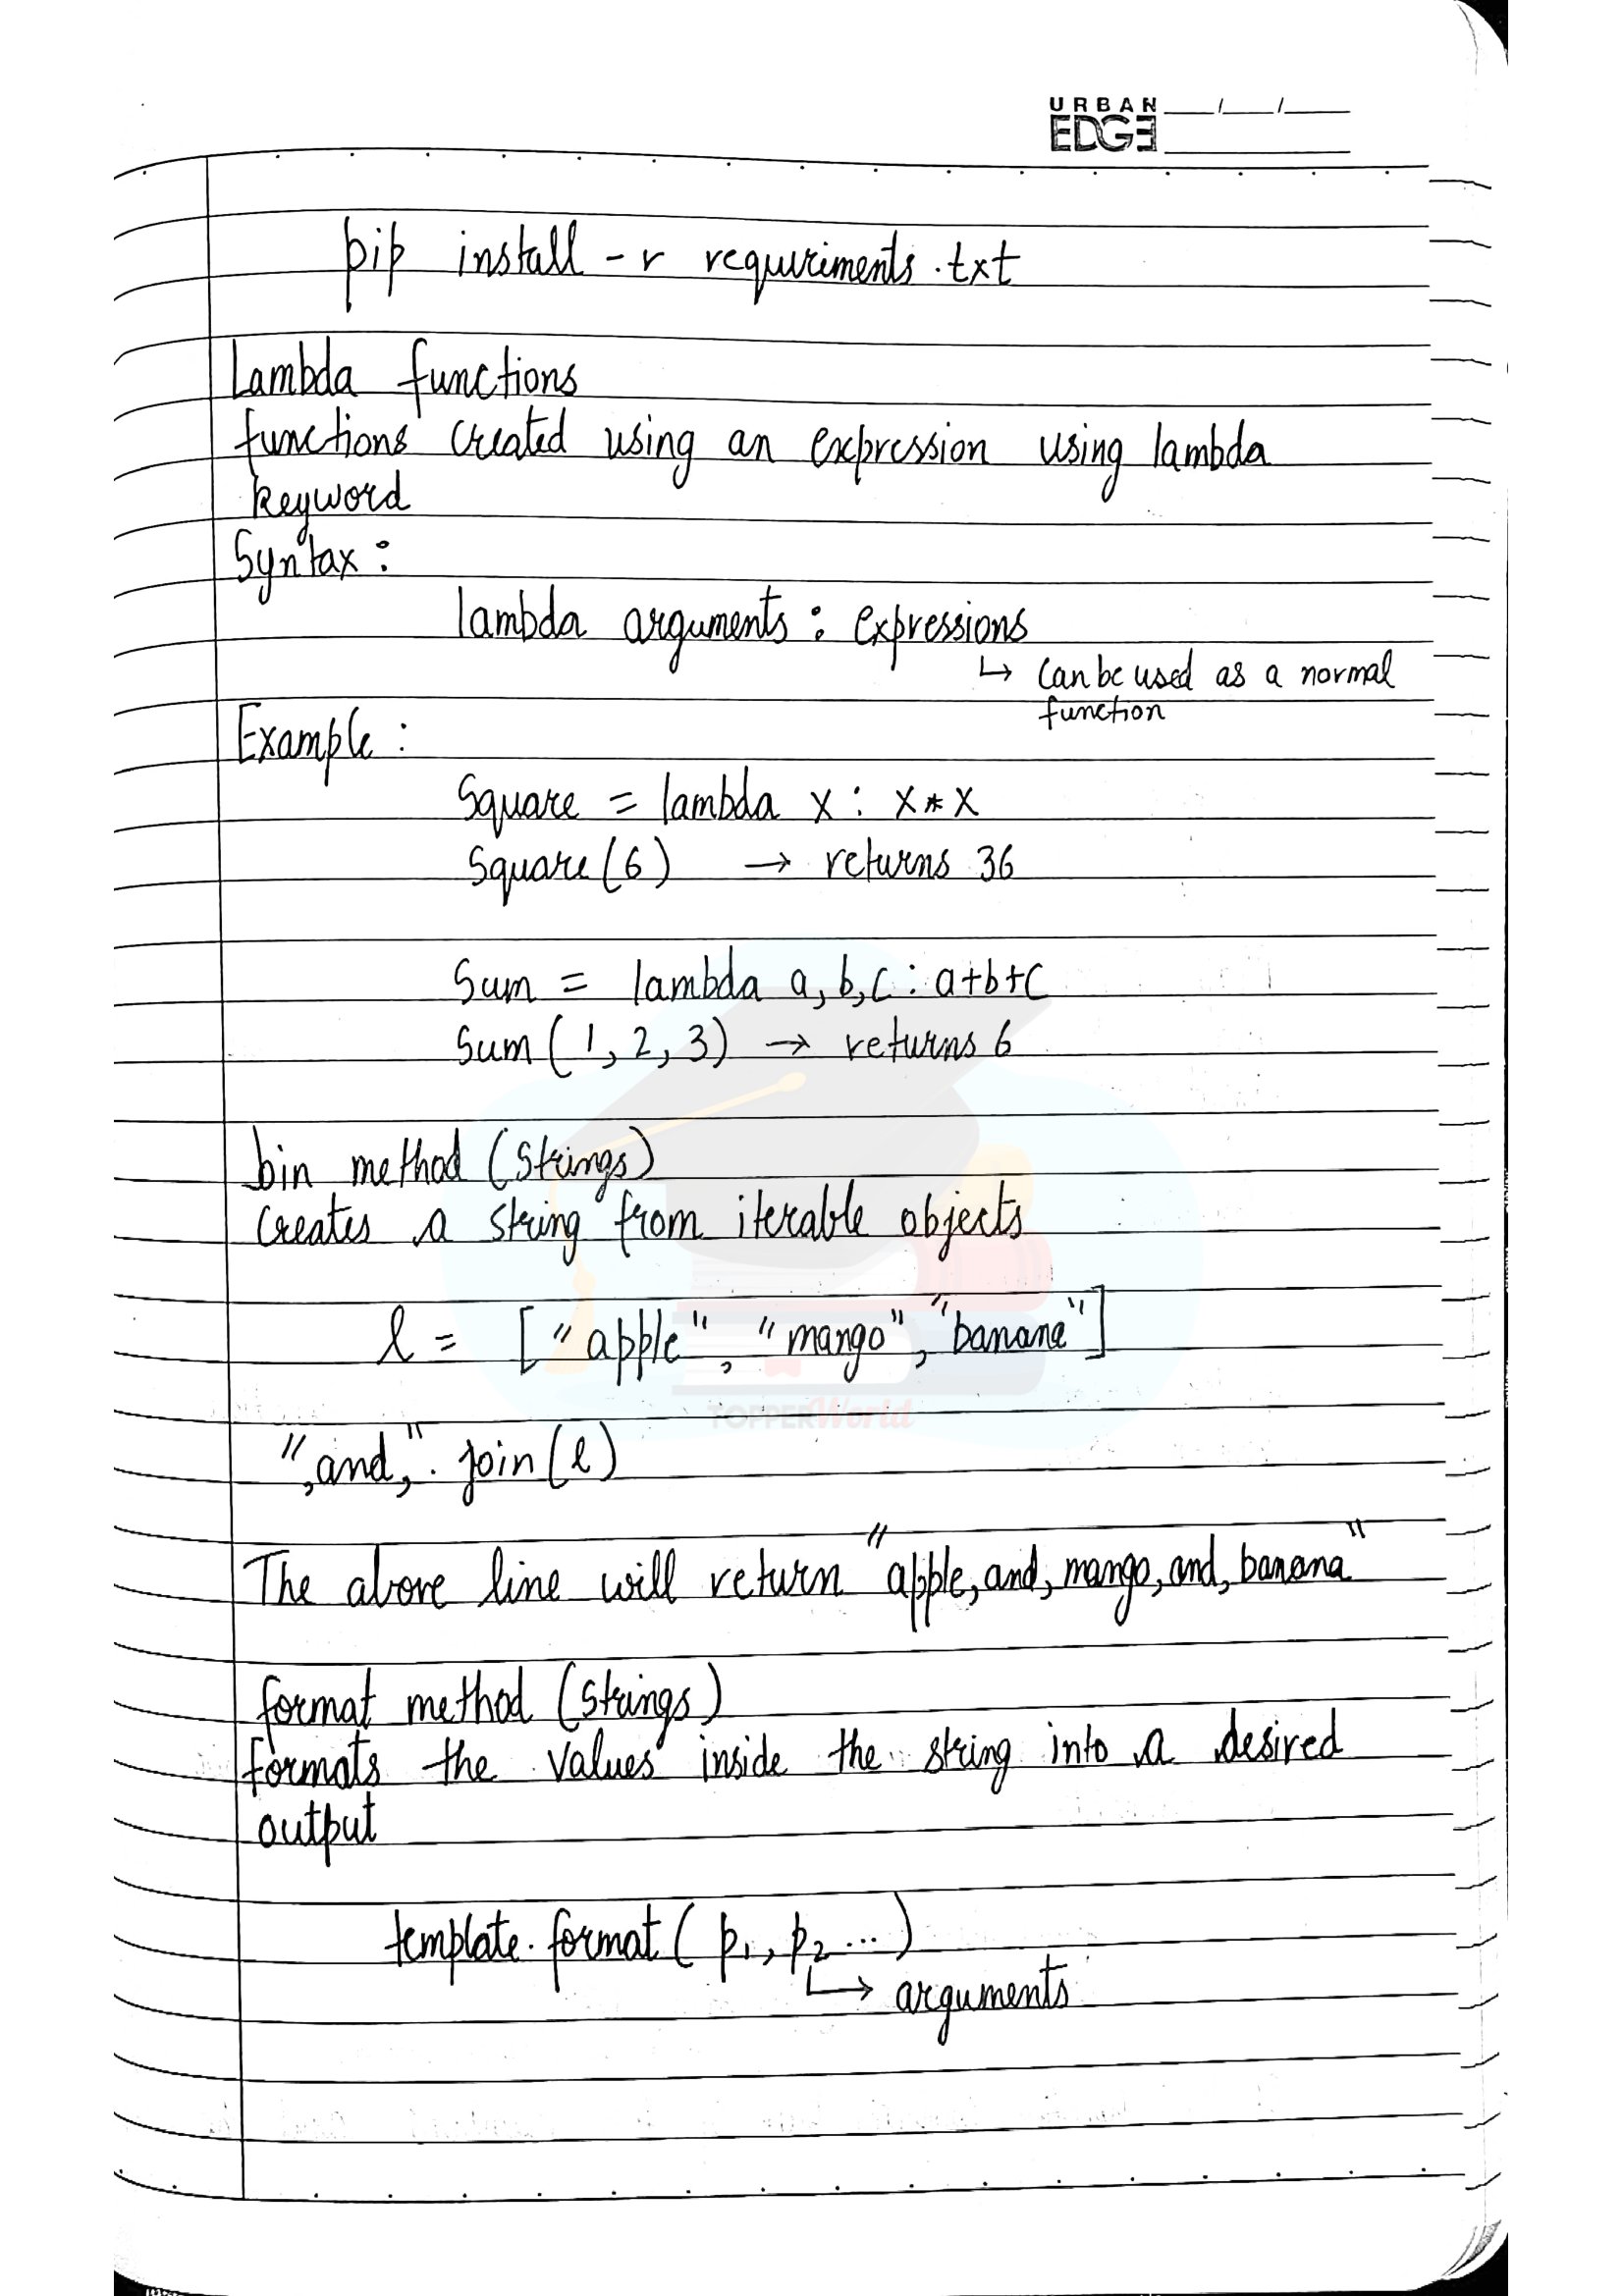 URBAN
EDGE
pip install -r requriments.txt
Lambda functions
functions created using an expression using lambda
keyword
Syntax:
lambda arguments: expressions
↳ can be used as a normal
function
Example:
Square = lambda x: x*x
Square(6) → returns 36
Sum = lambda a,b,c: a+b+c
Sum(1,2,3) → returns 6
bin method (strings)
Creates a string from iterable objects
l = ["apple", "mango", "banana"]
TOPPERWorld
",and,".join(l)
The above line will return "apple,and,mango,and,banana"
format method (strings)
formats the values inside the string into a desired
output
template.format(p1, p2 ...)
↳ arguments